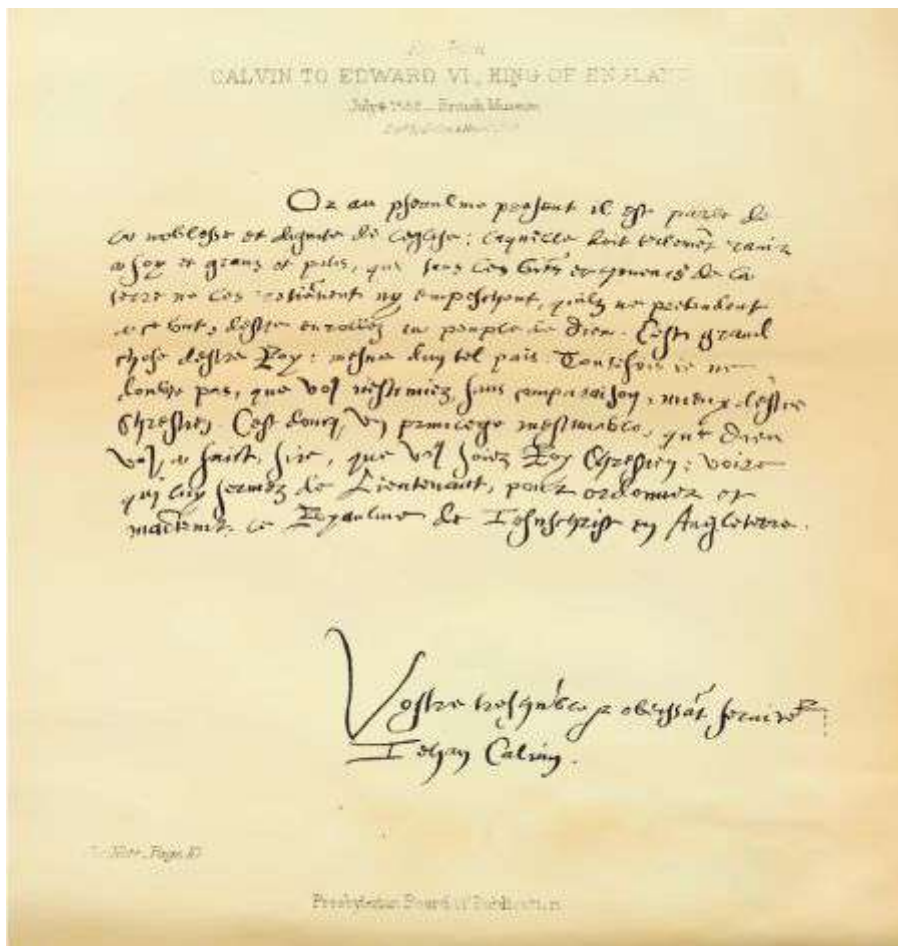 CALVIN TO EDWARD VI, KING OF ENGLAND
British Museum
Or au pseaulme present il est parle de
la noblesse et dignite de leglise: laquelle doit tellemẽt ravir
a soy et grans et petis, que tous les biẽs et honneurs de la
terre ne les retiẽnent ny empeschent, quilz ne pretendent
a ce but, destre enrollez au peuple de Dieu. Cest grand
chose destre Roy: mesme dun tel pais Toutesfois ie ne
doubte pas, que vous nestimiez sans comparaison, mieux destre
Chrestien Cest doncq un privilege inestimable, que Dieu
vous a faict, sire, que vous soiez Roy Chrestien: voire
qui luy servez de Lieutenant, pour ordonner et
maĩtenir le Royaulme de Iesuschrist en Angleterre.
Vostre treshũble et obeissãt serviteur
Iehan Calvin.
Page 
Presbyterian Board of Publication